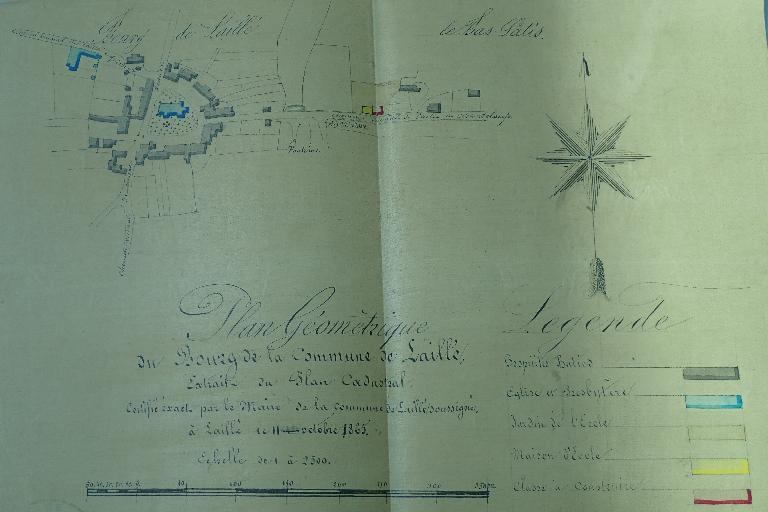 Bourg de Laillé
le Bas Patis.
Plan Géométrique
du Bourg de la Commune de Laillé,
Extrait du Plan Cadastral
Certifié exact par le Maire de la Commune de Laillé soussigné,
à Laillé le 11 octobre 1865.
Echelle de 1 à 2500.
Legende
Propriétés Baties
Eglise et Presbytère
Jardin de l'Ecole
Maison d'Ecole
Classe à Construire